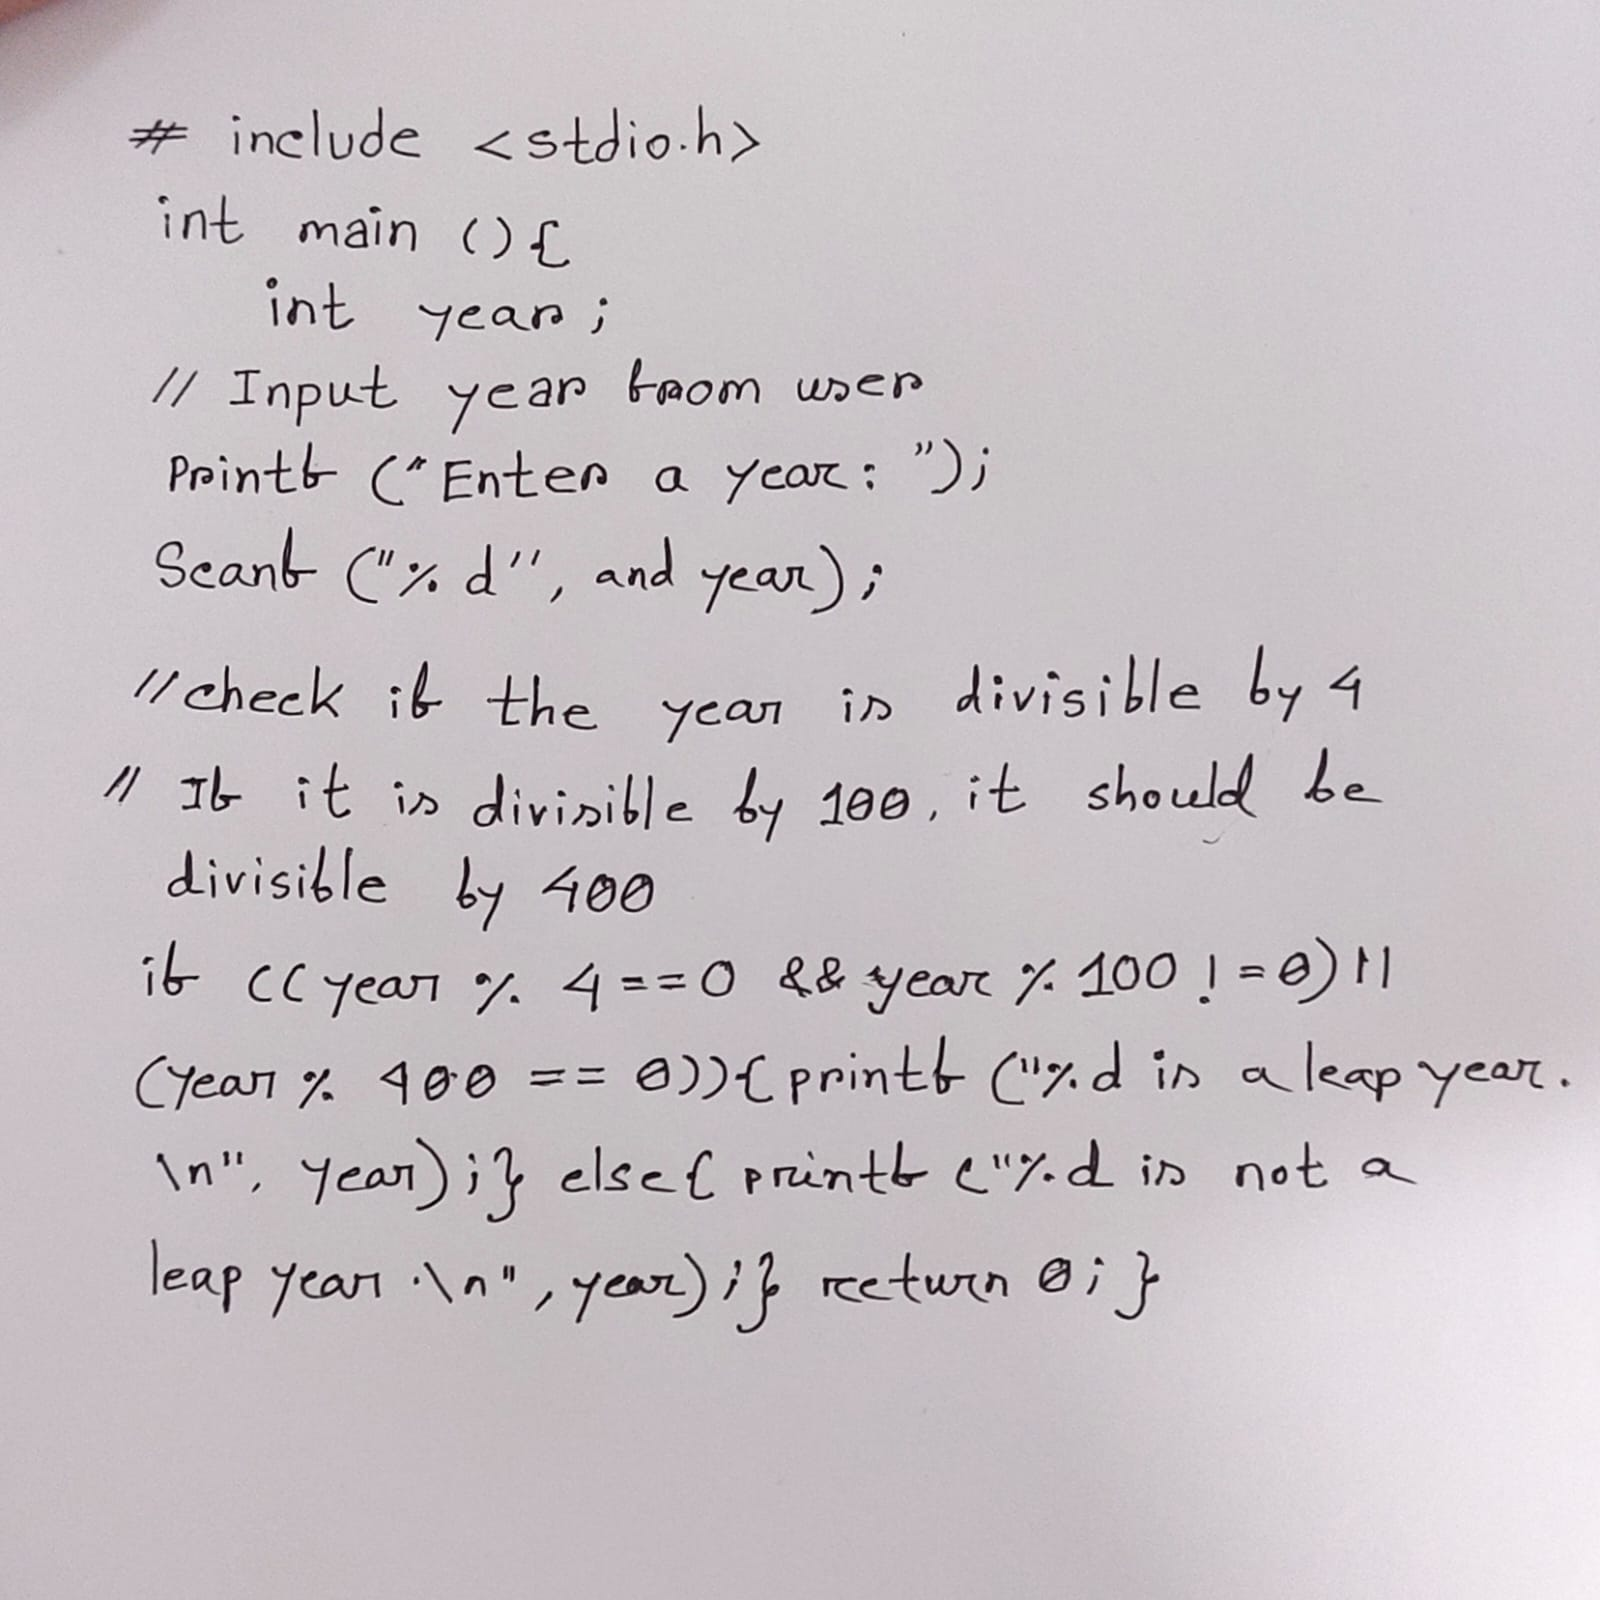 # include <stdio.h>
int main (){
int year;
// Input year from user
Printf ("Enter a year: ");
Scanf ("%d", and year);
//check if the year is divisible by 4
// If it is divisible by 100, it should be
divisible by 400
if ((year % 4==0 && year % 100 != 0) ||
(year % 400 == 0)){ printf ("%d is a leap year.
\n", year);} else{ printf ("%d is not a
leap year .\n", year);} return 0; }